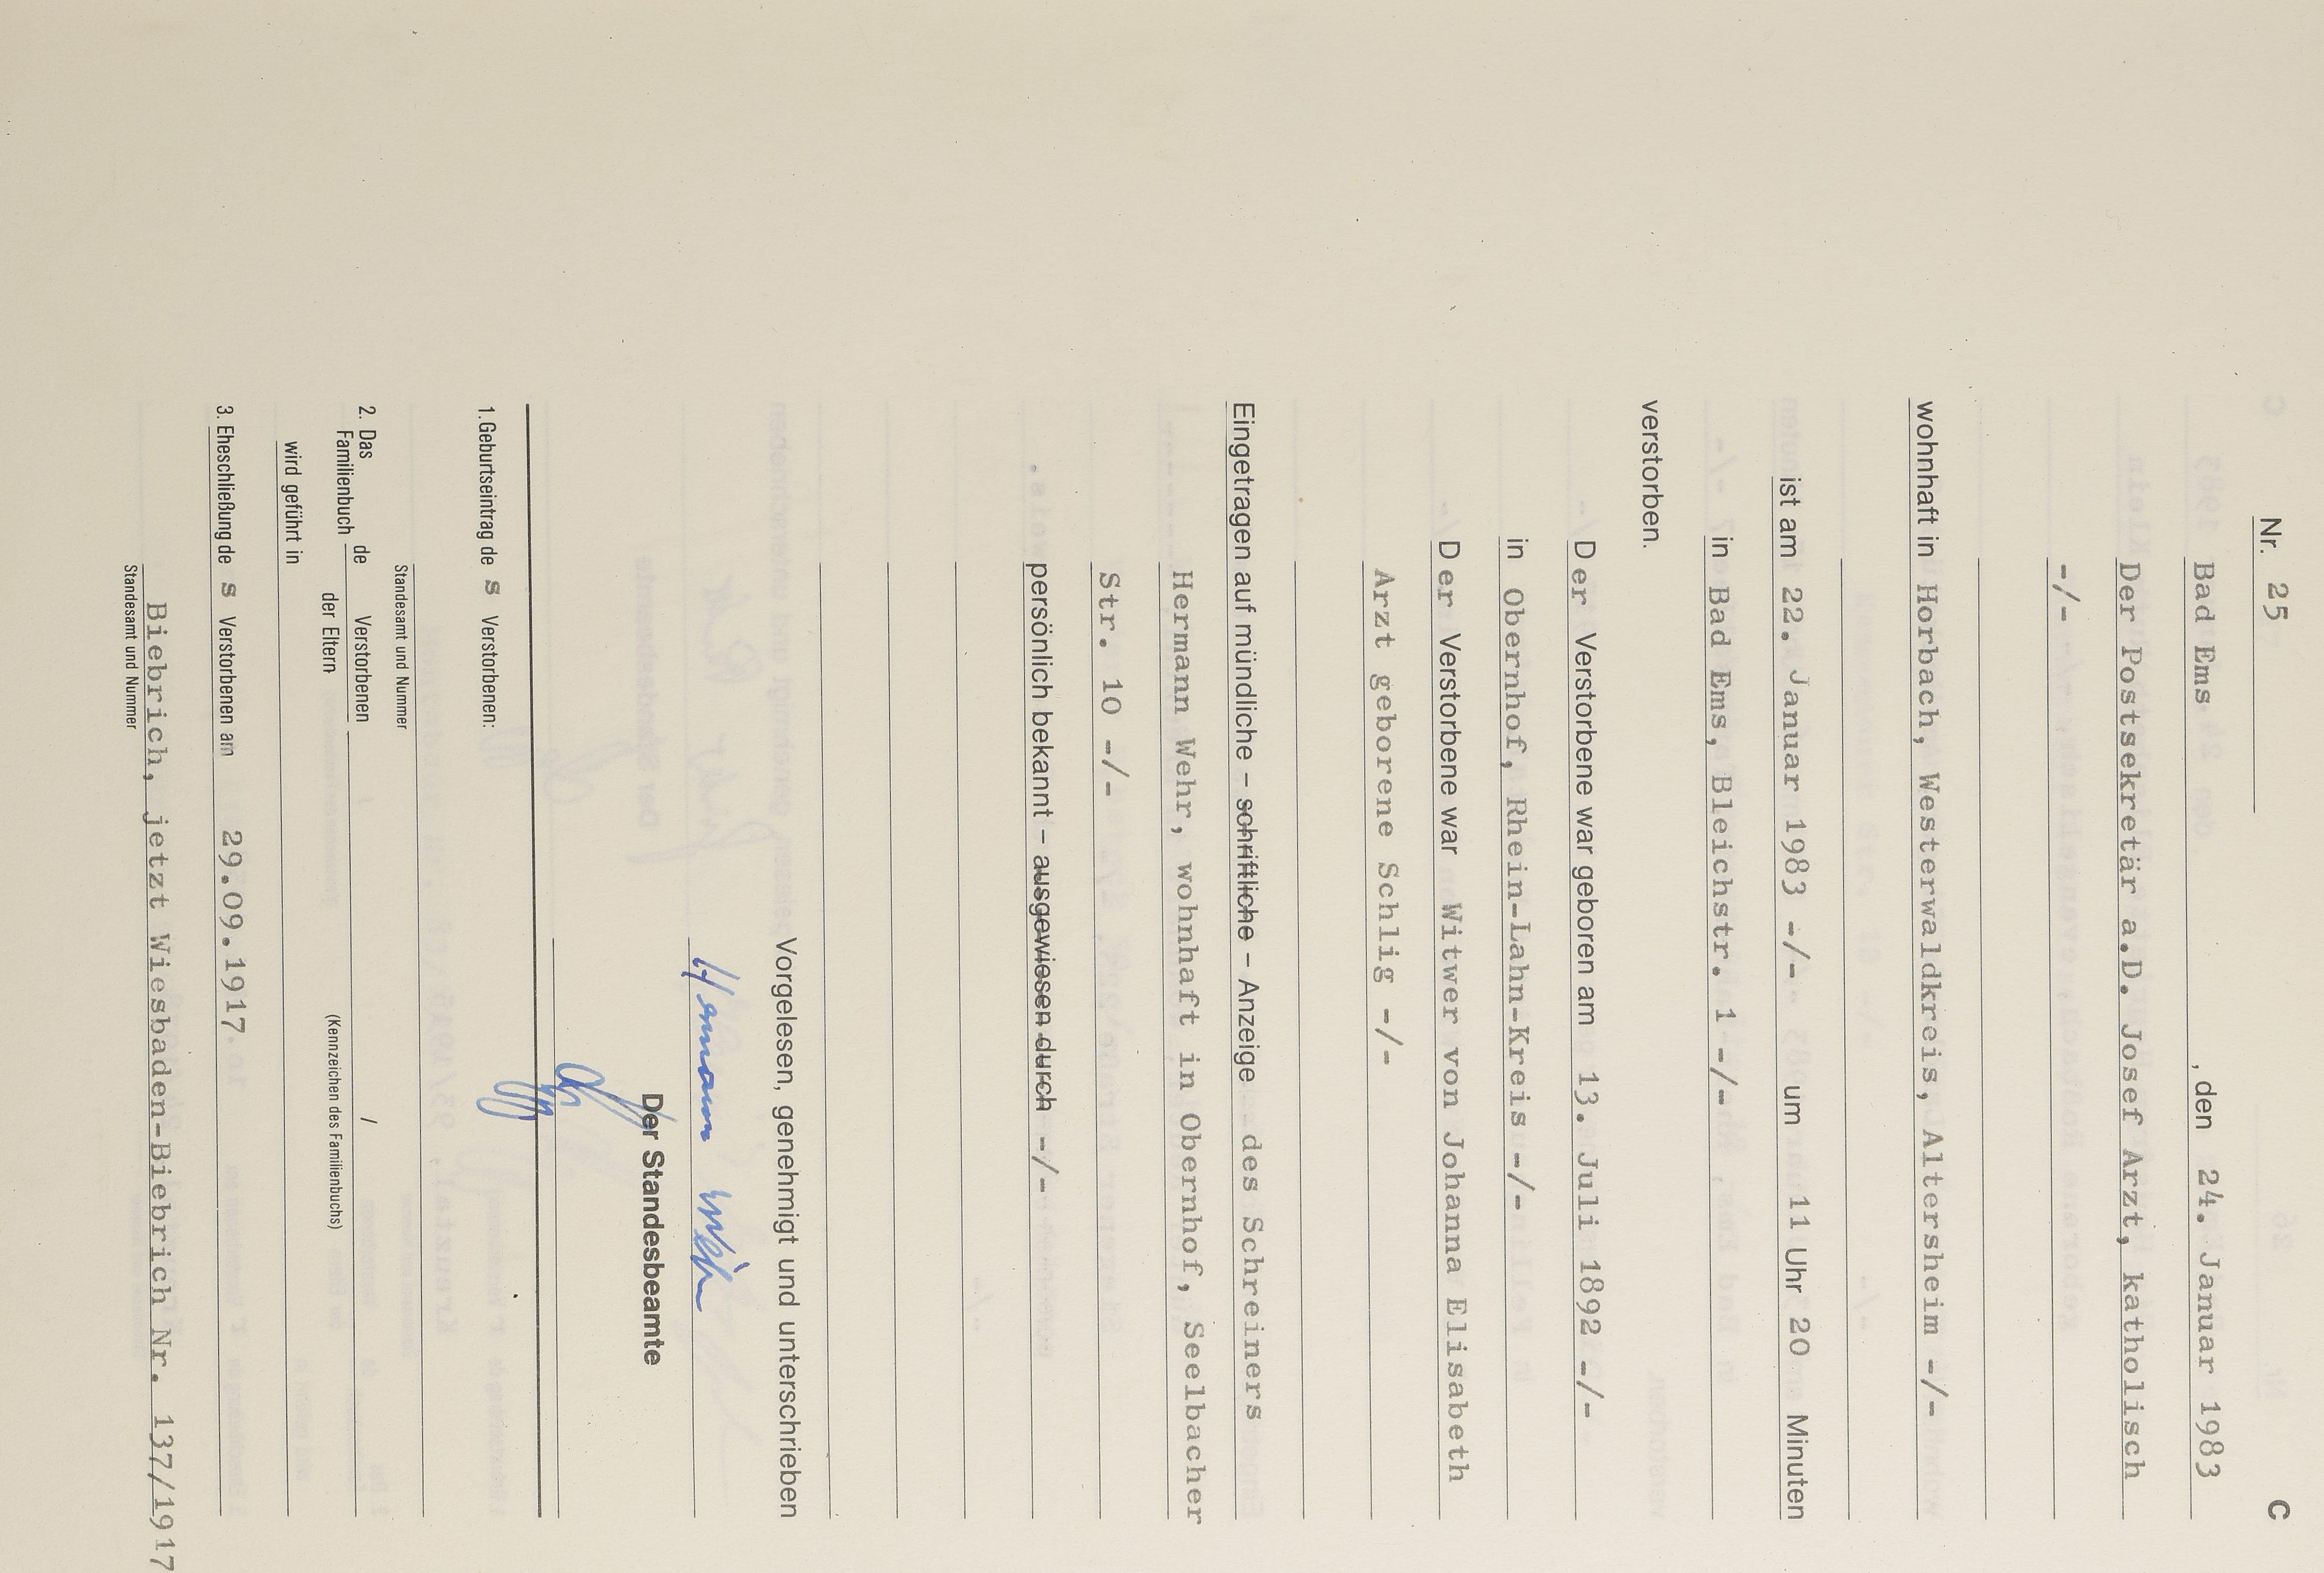 C
Nr. 25
Bad Ems , den 24. Januar 1983
Der Postsekretär a.D. Josef Arzt, katholisch
-/-
wohnhaft in Horbach, Westerwaldkreis, Altersheim -/-
ist am 22. Januar 1983 -/- um 11 Uhr 20 Minuten
in Bad Ems, Bleichstr. 1 -/-
verstorben.
Der Verstorbene war geboren am 13. Juli 1892 -/-
in Obernhof, Rhein-Lahn-Kreis -/-
Der Verstorbene war Witwer von Johanna Elisabeth
Arzt geborene Schlig -/-
Eingetragen auf mündliche – schriftliche – Anzeige des Schreiners
Hermann Wehr, wohnhaft in Obernhof, Seelbacher
Str. 10 -/-
persönlich bekannt – ausgewiesen durch -/-
Vorgelesen, genehmigt und unterschrieben
Hermann Wehr
Der Standesbeamte
1.Geburtseintrag de s Verstorbenen:
Standesamt und Nummer
2. Das Familienbuch de Verstorbenen / der Eltern
(Kennzeichen des Familienbuchs)
wird geführt in
3. Eheschließung de s Verstorbenen am 29.09.1917
Biebrich, jetzt Wiesbaden-Biebrich Nr. 137/1917
Standesamt und Nummer